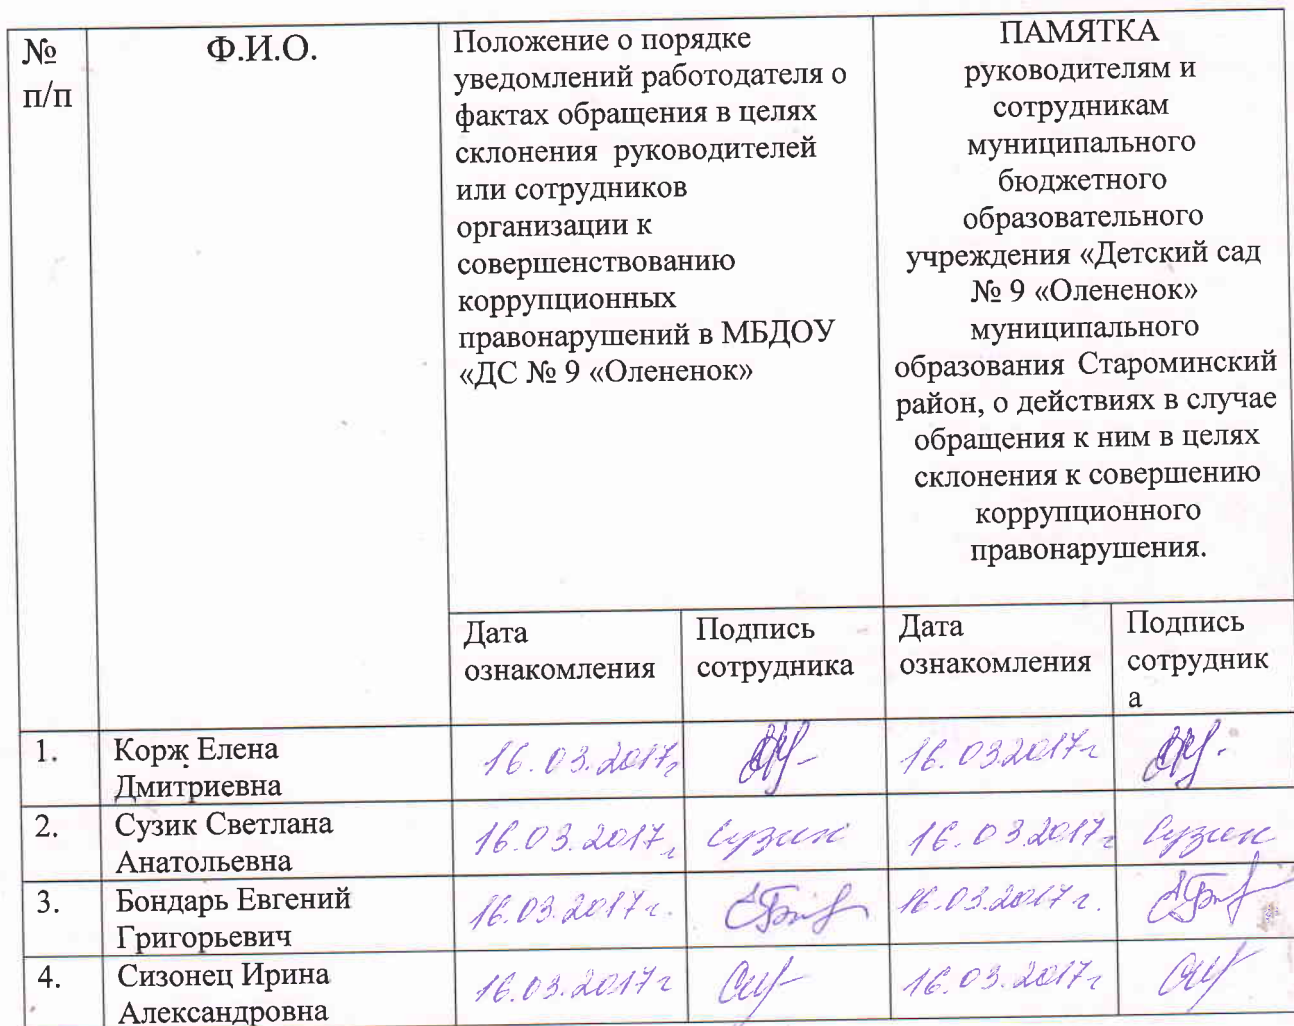 №
п/п
Ф.И.О.
Положение о порядке
уведомлений работодателя о
фактах обращения в целях
склонения руководителей
или сотрудников
организации к
совершенствованию
коррупционных
правонарушений в МБДОУ
«ДС № 9 «Олененок»
ПАМЯТКА
руководителям и
сотрудникам
муниципального
бюджетного
образовательного
учреждения «Детский сад
№ 9 «Олененок»
муниципального
образования Староминский
район, о действиях в случае
обращения к ним в целях
склонения к совершению
коррупционного
правонарушения.
Дата
ознакомления
Подпись
сотрудника
Дата
ознакомления
Подпись
сотрудник
а
1.
Корж Елена
Дмитриевна
16.03.2017г
16.03.2017г
2.
Сузик Светлана
Анатольевна
16.03.2017г
Сузик
16.03.2017г
Сузик
3.
Бондарь Евгений
Григорьевич
16.03.2017г.
16.03.2017г.
4.
Сизонец Ирина
Александровна
16.03.2017г
16.03.2017г